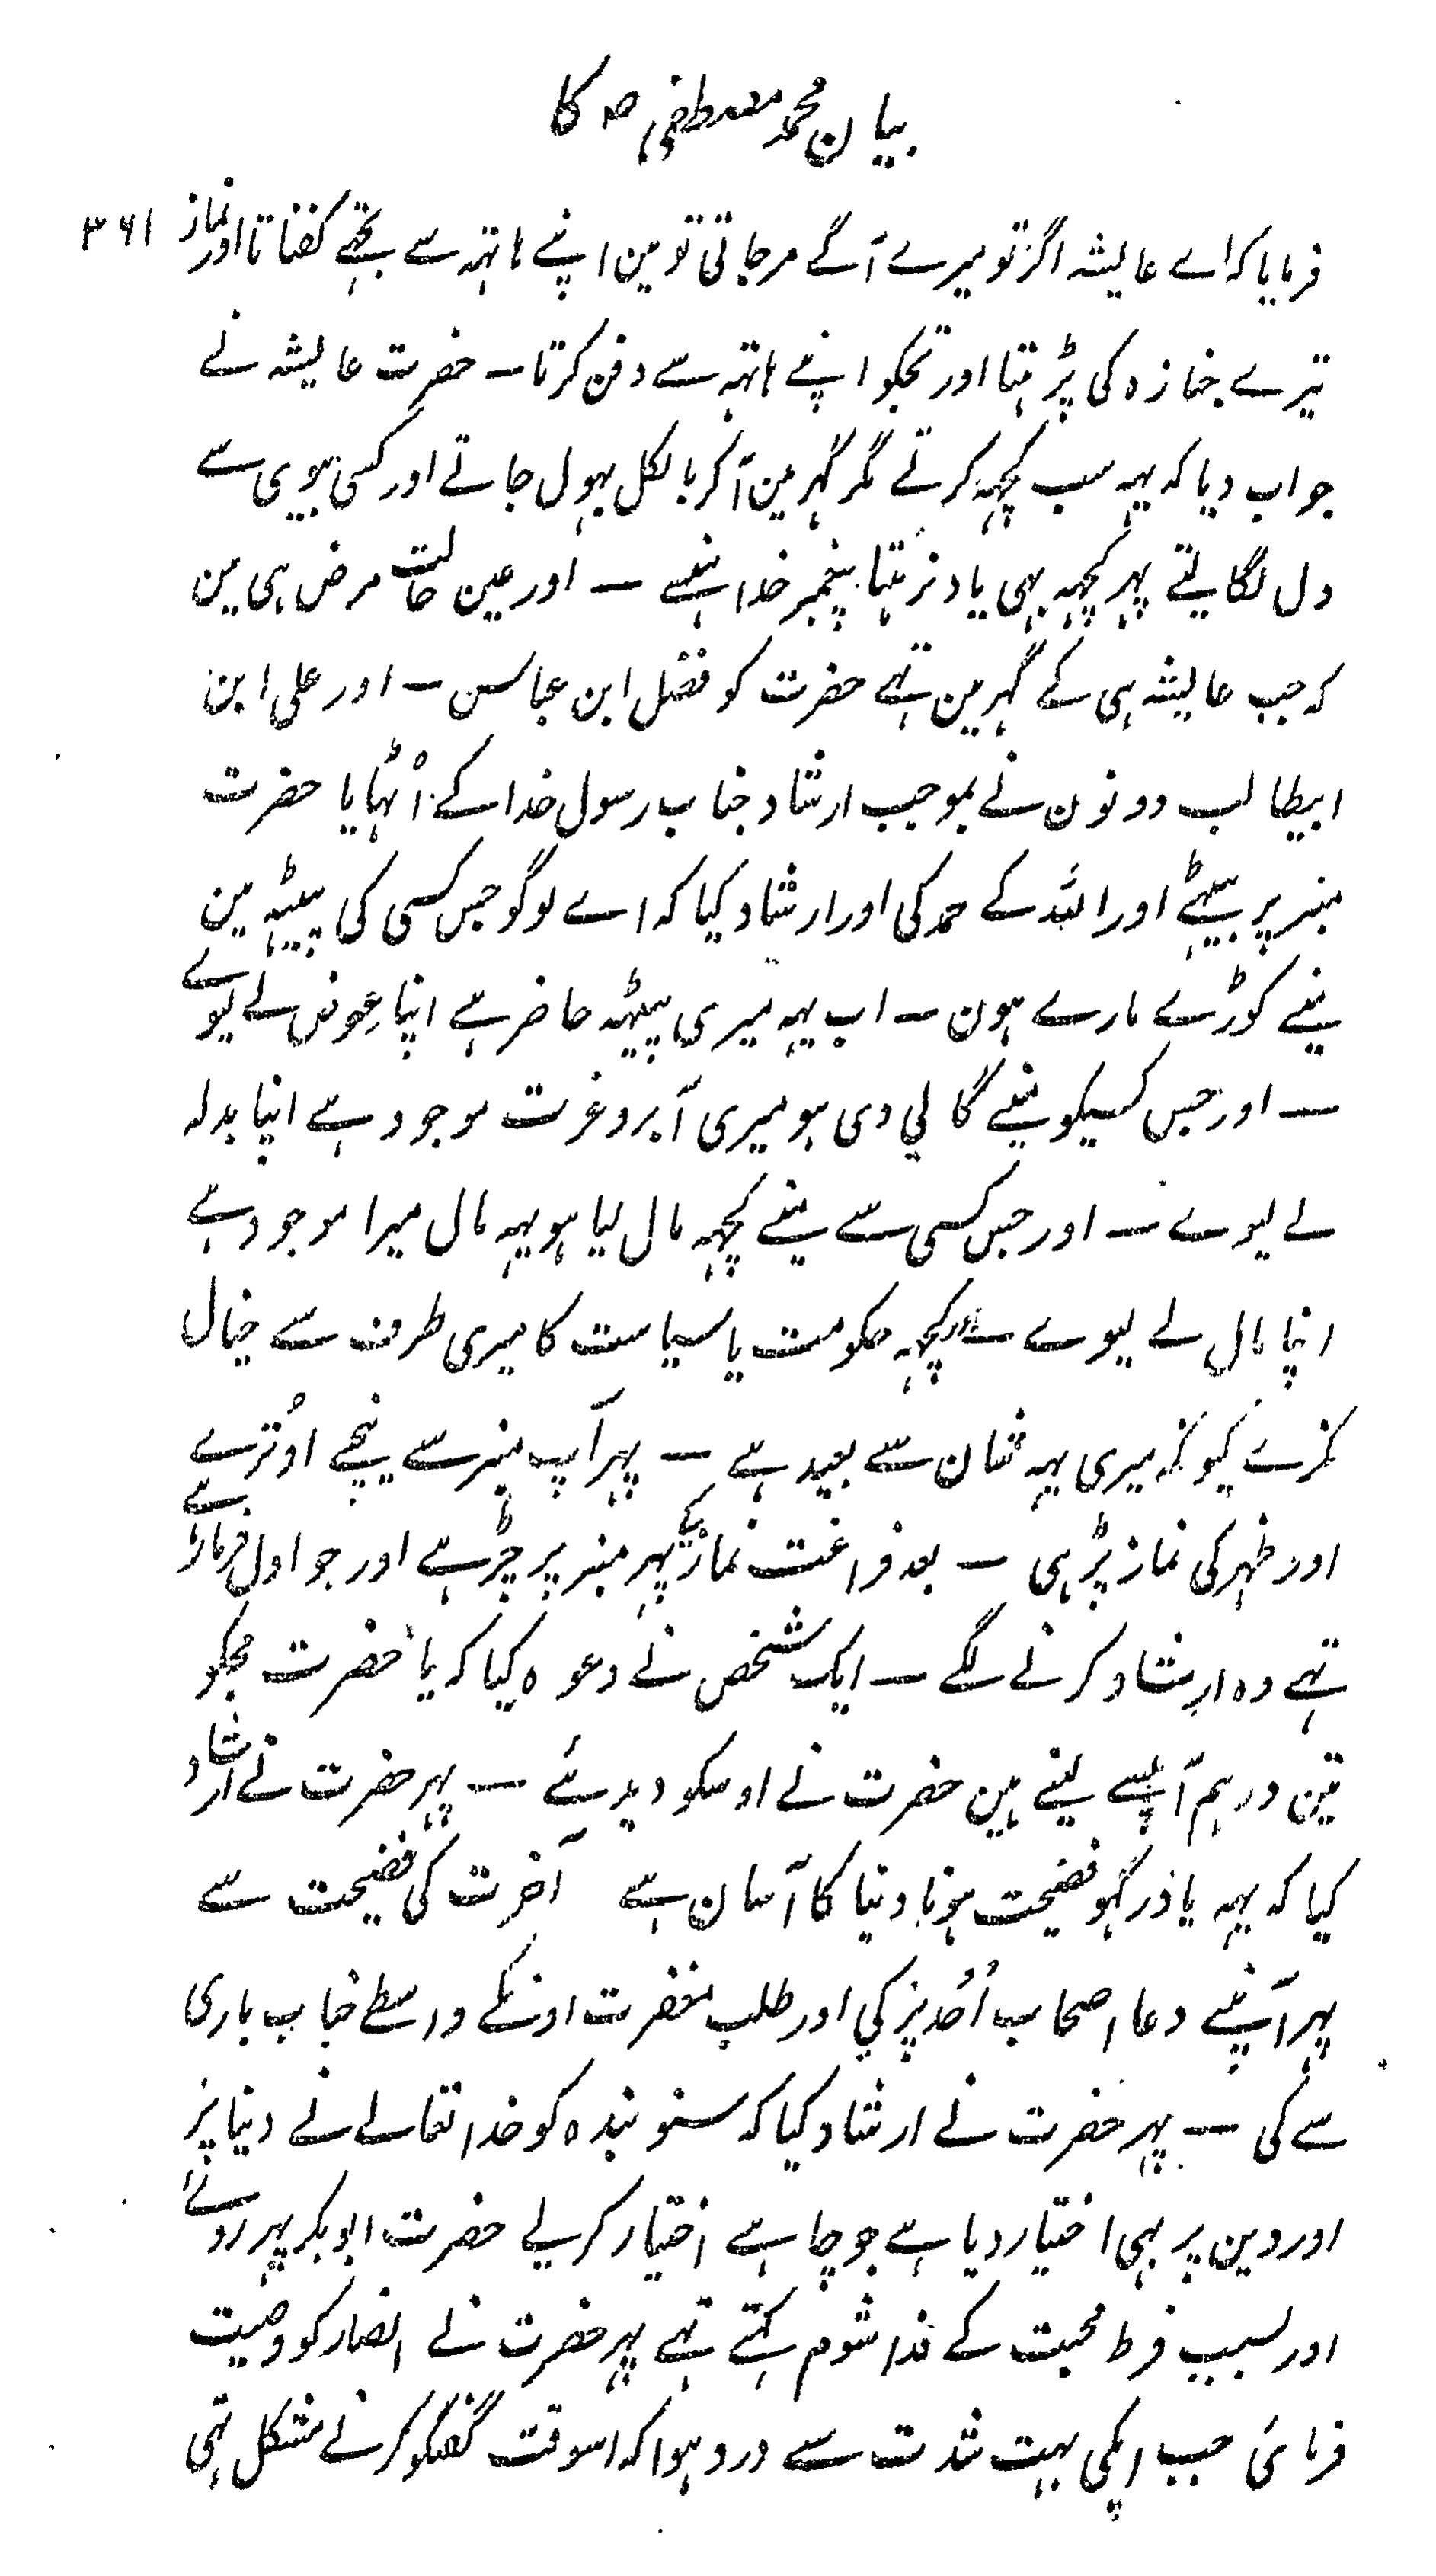 بیان محمد مصطفیٰ ص کا
۳۶۱
فرمایا کہ اے عایشہ اگر تو میرے آگے مرجاتی تو مین اپنے ہاتہہ سے تجھے کفناتا اور نماز
تیرے جنازہ کی پڑہتا اور تجکو اپنے ہاتہہ سے دفن کرتا ــ حضرت عایشہ نے
جواب دیا کہ یہہ سب کچہہ کرتے مگر گہر مین آکر بالکل بہول جاتے اور کسی بیوی سے
دل لگا لیتے پہر کچہہ بہی یاد نرہتا پیغمبر خدا ہنسے ــ اور عین حالت مرض ہی مین
کہ جب عایشہ ہی کے گہر مین تہے حضرت کو فضل ابن عباس ــ اور علی ابن
ابیطالب دونون نے بموجب ارشاد جناب رسول خدا کے اُٹہایا حضرت
منبر پر بیٹہے اور اللہ کے حمد کی اور ارشاد کیا کہ اے لوگو جس کسی کی پیٹہہ مین
مینے کوڑے مارے ہون ــ اب یہہ میری پیٹہہ حاضر ہے اپنا عوض لے لیوے
ــ اور جس کسیکو مینے گالی دی ہو میری آبرو عزت موجود ہے اپنا بدلہ
لے لیوے ــ اور جس کسی سے مینے کچہہ مال لیا ہو یہہ مال میرا موجود ہے
اپنا مال لے لیوے ــ اور کچہہ حکومت یا سیاست کا میری طرف سے خیال
نکرے کیونکہ میری یہہ شان سے بعید ہے ــ پہر آپ منبر سے نیچے اوُترے
اور ظہر کی نماز پڑہی ــ بعد فراغت نماز کے پہر منبر پر چڑہے اور جو اول فرمارہے
تہے وہ ارشاد کرنے لگے ــ ایک شخص نے دعوہ کیا کہ یا حضرت مجکو
تین درہم آپسے لینے ہین حضرت نے اوسکو دیدئے ــ پہر حضرت نے ارشاد
کیا کہ یہہ یاد رکہو فضیحت ہونا دنیا کا آسان ہے آخرت کی فضیحت سے
پہر آپنے دعا اصحاب اُحد پر کی اور طلب مغفرت اونکے واسطے جناب باری
سے کی ــ پہر حضرت نے ارشاد کیا کہ سنو بندہ کو خدا تعالے نے دنیا پر
اور دین پر بہی اختیار دیا ہے جو چاہے اختیار کرلے حضرت ابوبکر پہر روئے
اور بسبب فرط محبت کے فدا شوم کہتے تہے پہر حضرت نے انصار کو وصیت
فرمائی جب اپکی بہت شدت سے درد ہوا کہ اسوقت گفتگو کرنے مشکل تہی